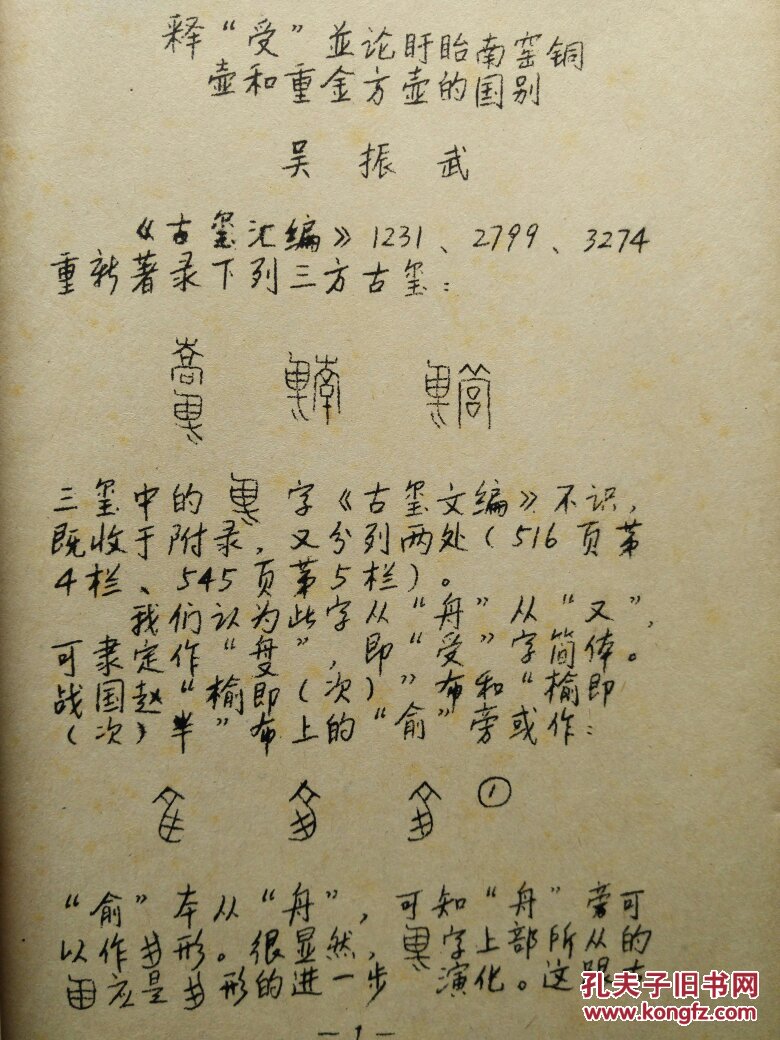 释“受”並论盱眙南窑铜
壶和重金方壶的国别
吴 振 武
《古玺汇编》1231、2799、3274
重新著录下列三方古玺：
三玺中的 字《古玺文编》不识，
既收于附录，又分列两处（516页第
4栏、545页第5栏）。
我们认为此字从“舟”从“又”，
可隶定作“ ”，即“受”字简体。
战国赵“榆即（次）”布和“榆即
（次）半”布上的“俞”旁或作：
①
“俞”本从“舟”，可知“舟”旁可
以作 形。很显然， 字上部所从的
应是 形的进一步演化。这
—1—
孔夫子旧书网
www.kongfz.com